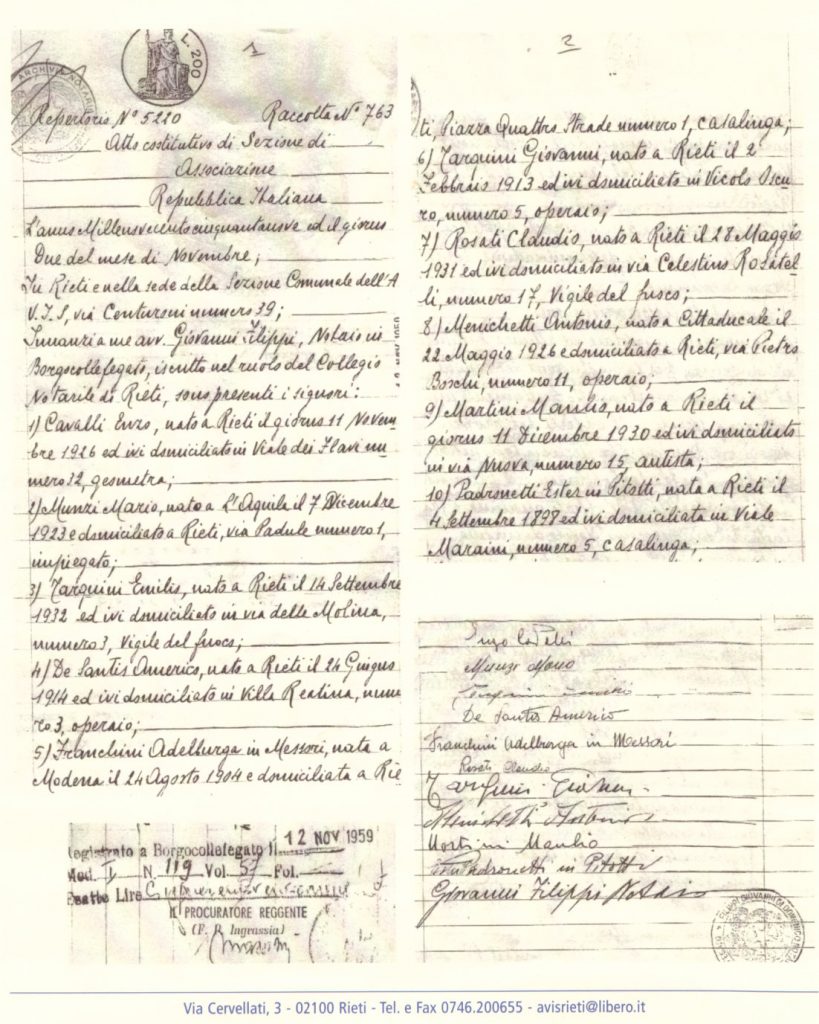 1
L. 200
ARCHIVIO NOTARILE
Repertorio N° 5220 Raccolta N° 763
Atto costitutivo di Sezione di
Associazione
Repubblica Italiana
L'anno Millenovecentocinquantanove ed il giorno
Due del mese di Novembre;
In Rieti e nella sede della Sezione Comunale dell'A
V.I.S, via Centuroni numero 39;
Innanzi a me avv. Giovanni Filippi, Notaio in
Borgocollefegato, iscritto nel ruolo del Collegio
Notarile di Rieti, sono presenti i signori:
1) Cavalli Enzo, nato a Rieti il giorno 11 Novem
bre 1926 ed ivi domiciliato in Viale dei Flavi nu
mero 32, geometra;
2) Munzi Mario, nato a L'Aquila il 7 Dicembre
1923 e domiciliato a Rieti, via Padule numero 1,
impiegato;
3) Tarquini Emilio, nato a Rieti il 14 Settembre
1932 ed ivi domiciliato in via delle Molina,
numero 3, Vigile del fuoco;
4) De Santis Americo, nato a Rieti il 24 Giugno
1914 ed ivi domiciliato in Villa Reatina, nume
ro 3, operaio;
5) Franchini Adelburga in Messori, nata a
Modena il 24 Agosto 1904 e domiciliata a Rie
2
ti, Piazza Quattro Strade numero 1, casalinga;
6) Tarquini Giovanni, nato a Rieti il 2
Febbraio 1913 ed ivi domiciliato in Vicolo Oscu
ro, numero 5, operaio;
7) Rosati Claudio, nato a Rieti il 28 Maggio
1931 ed ivi domiciliato in via Celestino Rosatel
li, numero 17, Vigile del fuoco;
8) Menichetti Antonio, nato a Cittaducale il
22 Maggio 1926 e domiciliato a Rieti, via Pietro
Boschi, numero 11, operaio;
9) Martini Manlio, nato a Rieti il
giorno 11 Dicembre 1930 ed ivi domiciliato
in via Nuova, numero 15, autista;
10) Padronetti Ester in Pitotti, nata a Rieti il
4 Settembre 1898 ed ivi domiciliata in Viale
Maraini, numero 5, casalinga;
Munzi Mario
De Santis Americo
Franchini Adelburga in Messori
Rosati Claudio
Tarquini
Menichetti Antonio
Martini Manlio
Padronetti in Pitotti
Giovanni Filippi Notaio
Registrato a Borgocollefegato il 12 NOV 1959
Mod. I N. 119 Vol. 57 Fol.
Esatte Lire
IL PROCURATORE REGGENTE
(F. P. Ingrassia)
Via Cervellati, 3 - 02100 Rieti - Tel. e Fax 0746.200655 - avisrieti@libero.it